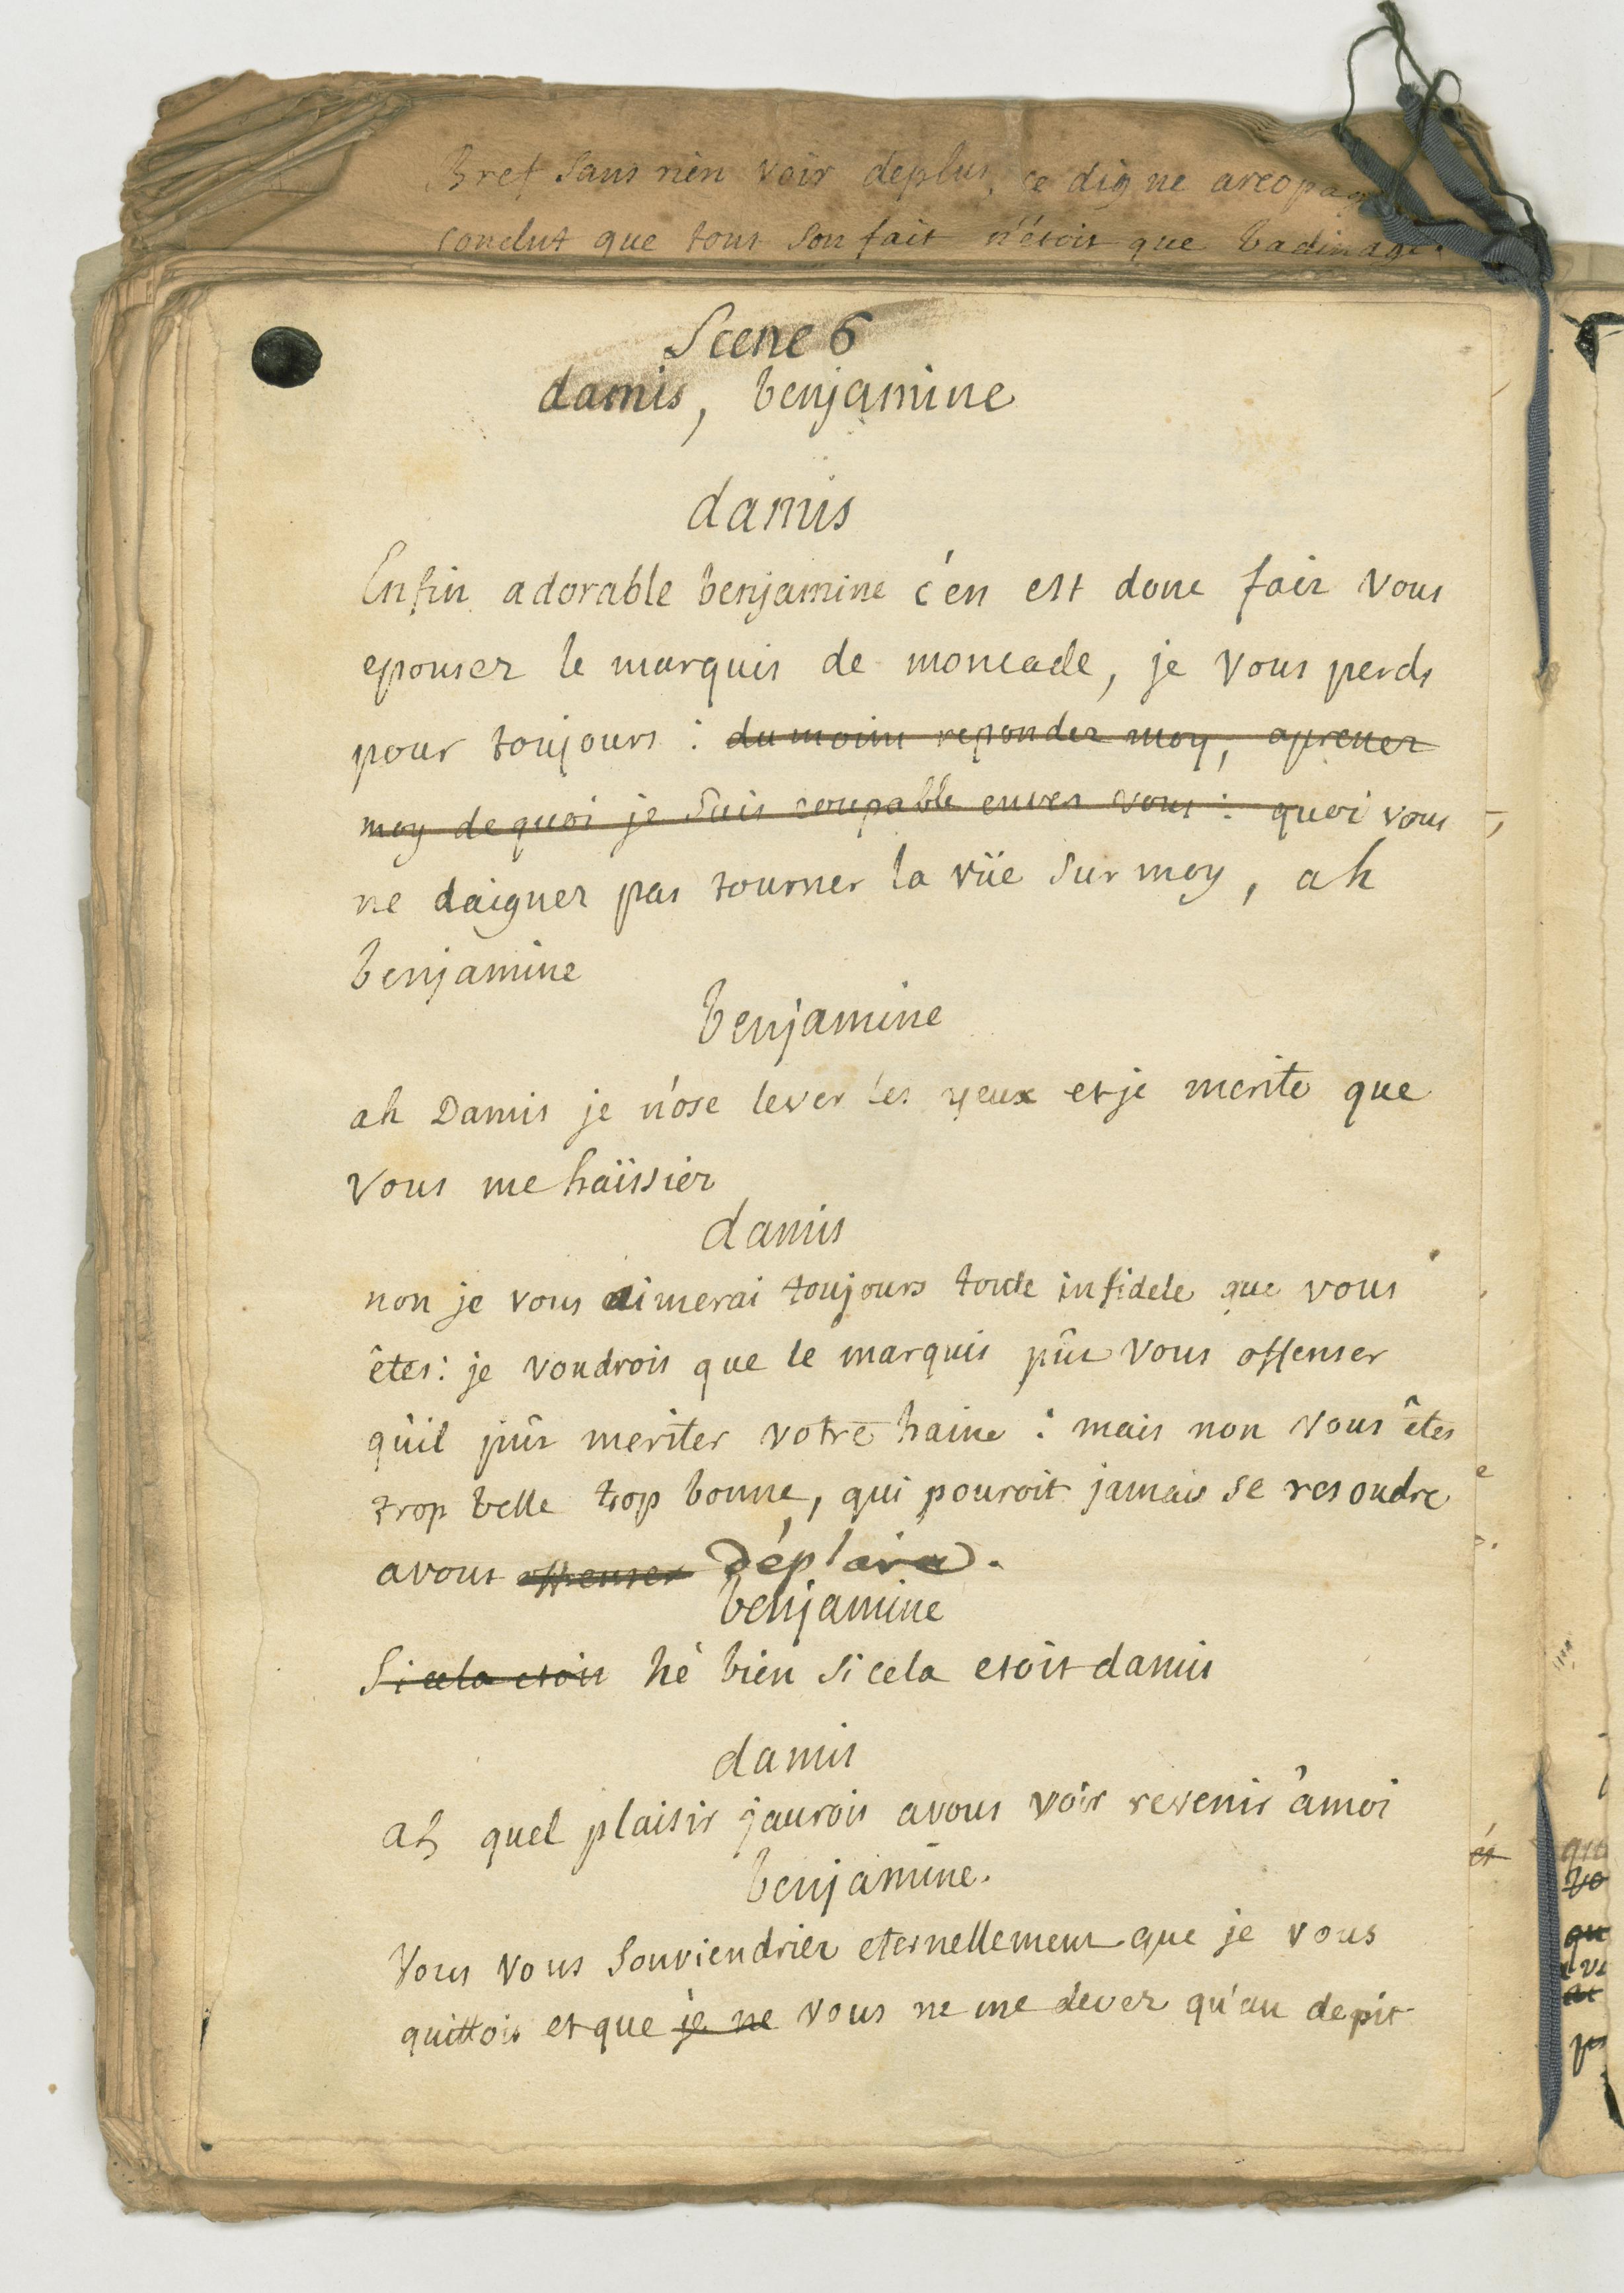 Bref sans rien voir deplus, ce digne areopag
conclut que tout son fait n'étoit que badinage.
Scene 6
damis, benjamine
damis
Enfin adorable benjamine c'en est donc fait vous
epousez le marquis de moncade, je vous perds
pour toujours : du moins repondez moy, aprenez
moy de quoi je suis coupable envers vous : quoi vous
ne daignez pas tourner la vüe sur moy, ah
benjamine
benjamine
ah Damis je n'ose lever les yeux et je merite que
vous me haïssiez
damis
non je vous aimerai toujours toute infidele que vous
êtes : je voudrois que le marquis pût vous offenser
qu'il pût meriter votre haine : mais non vous êtes
trop belle trop bonne, qui pouroit jamais se resoudre
avous offenser déplaire.
benjamine
Si cela etoit hé bien si cela etoit damis
damis
ah quel plaisir jaurois avous voir revenir àmoi
benjamine.
Vous vous souviendriez eternellement que je vous
quittois et que je ne vous ne me devez qu'au depit